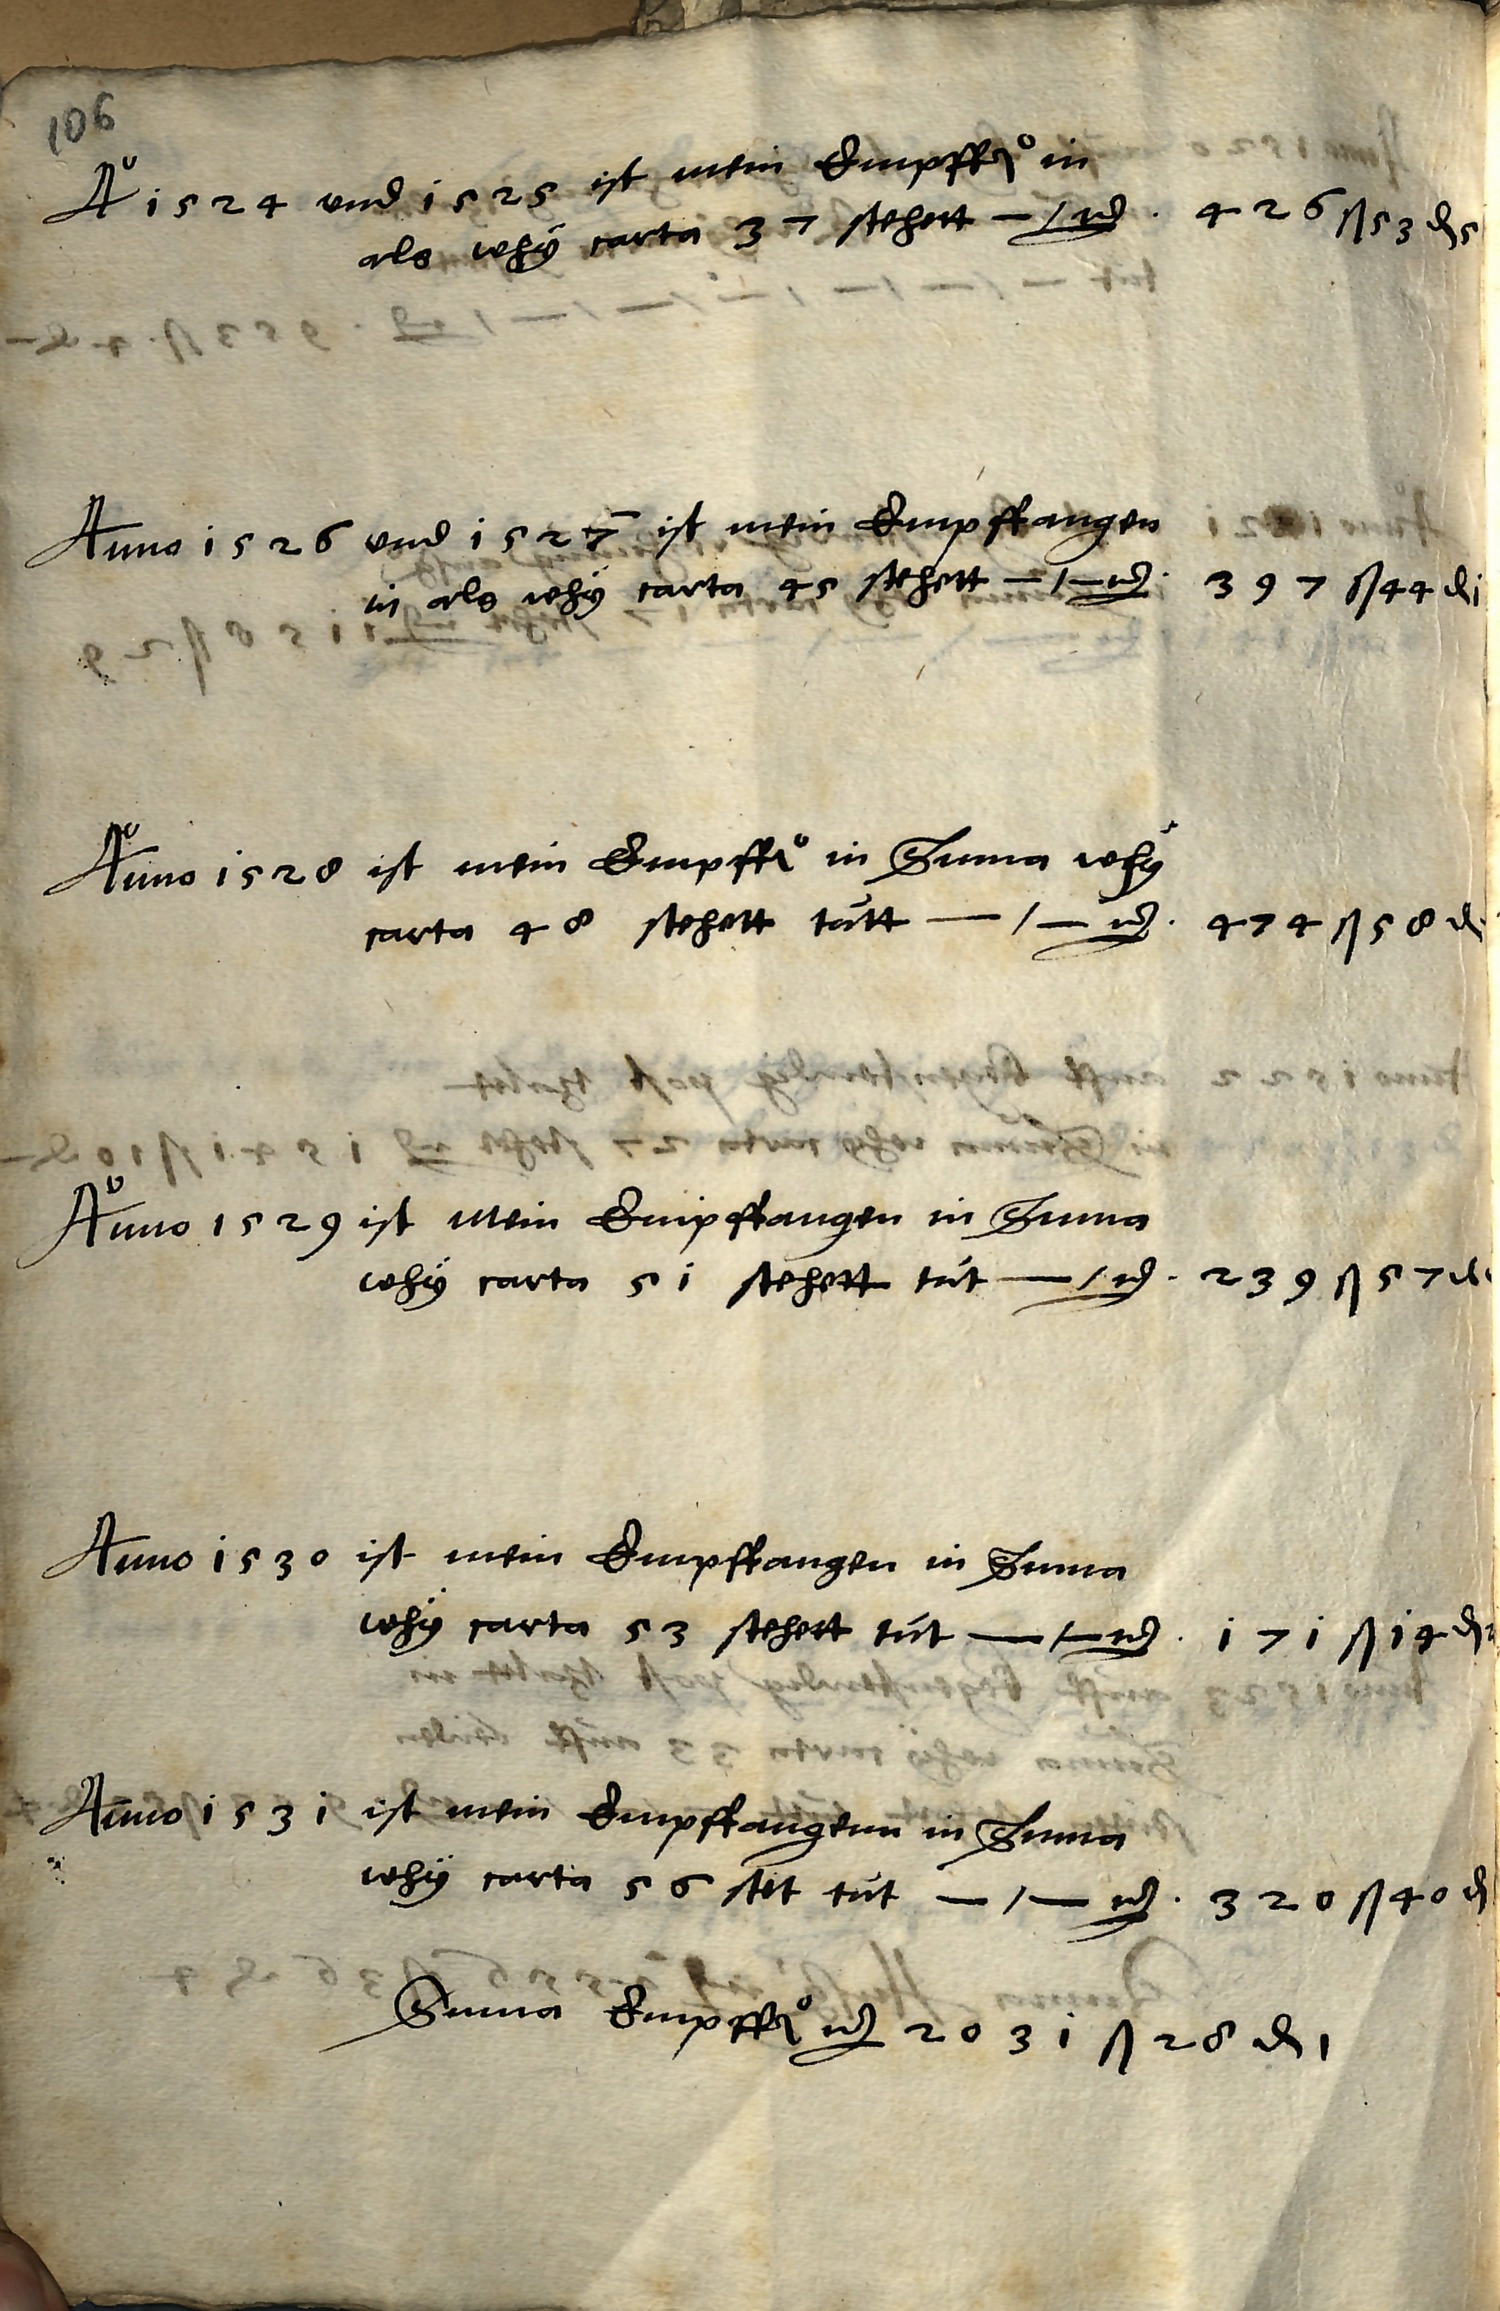 106
Ao 1524 und 1525 ist mein Empffgo in
als whÿ carta 37 stehett — / — rd. 426 ß 53 d 5
Anno 1526 und 1527 ist mein Empffangen
in als whÿ carta 45 stehett — / — rd. 397 ß 44 d 1
Anno 1528 ist mein Empffgo in Suma whÿ
carta 48 stehett tútt — / — rd. 474 ß 58 d
Anno 1529 ist mein Empffangen in Suma
whÿ carta 51 stehett tút — / rd. 239 ß 57 d
Anno 1530 ist mein Empffangen in Suma
whÿ carta 53 stehett tút — / — rd. 171 ß 14 d
Anno 1531 ist mein Empffangenn in Suma
whÿ carta 56 stet tút — / — rd. 320 ß 40 d
Suma Empffgo rd 2031 ß 28 d 1